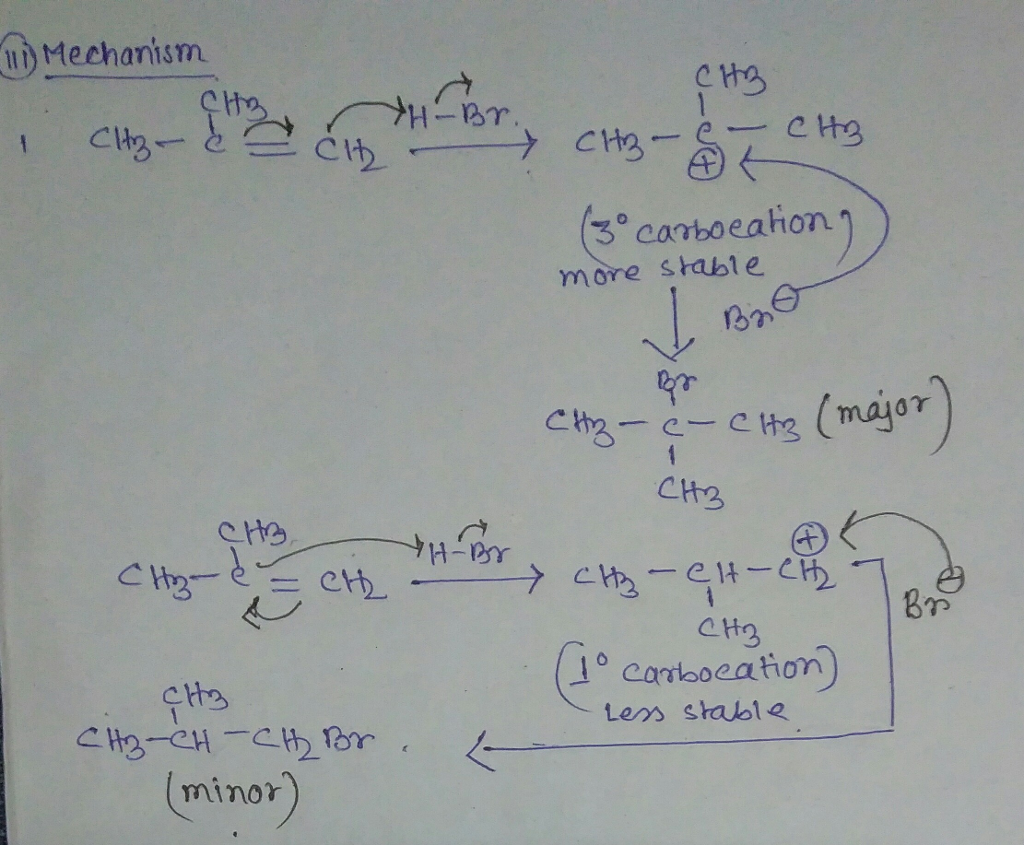 (iii) Mechanism
CH3
CH3 – C = CH2 H–Br.
1
CH3
CH3 – C – CH3
⊕
(3° carbocation,
more stable
Br⊖
Br
CH3 – C – CH3 (major)
CH3
CH3
CH3 – C = CH2 H–Br
⊕
CH3 – CH – CH2
Br⊖
CH3
(1° carbocation)
Less stable
CH3
CH3–CH–CH2Br.
(minor)